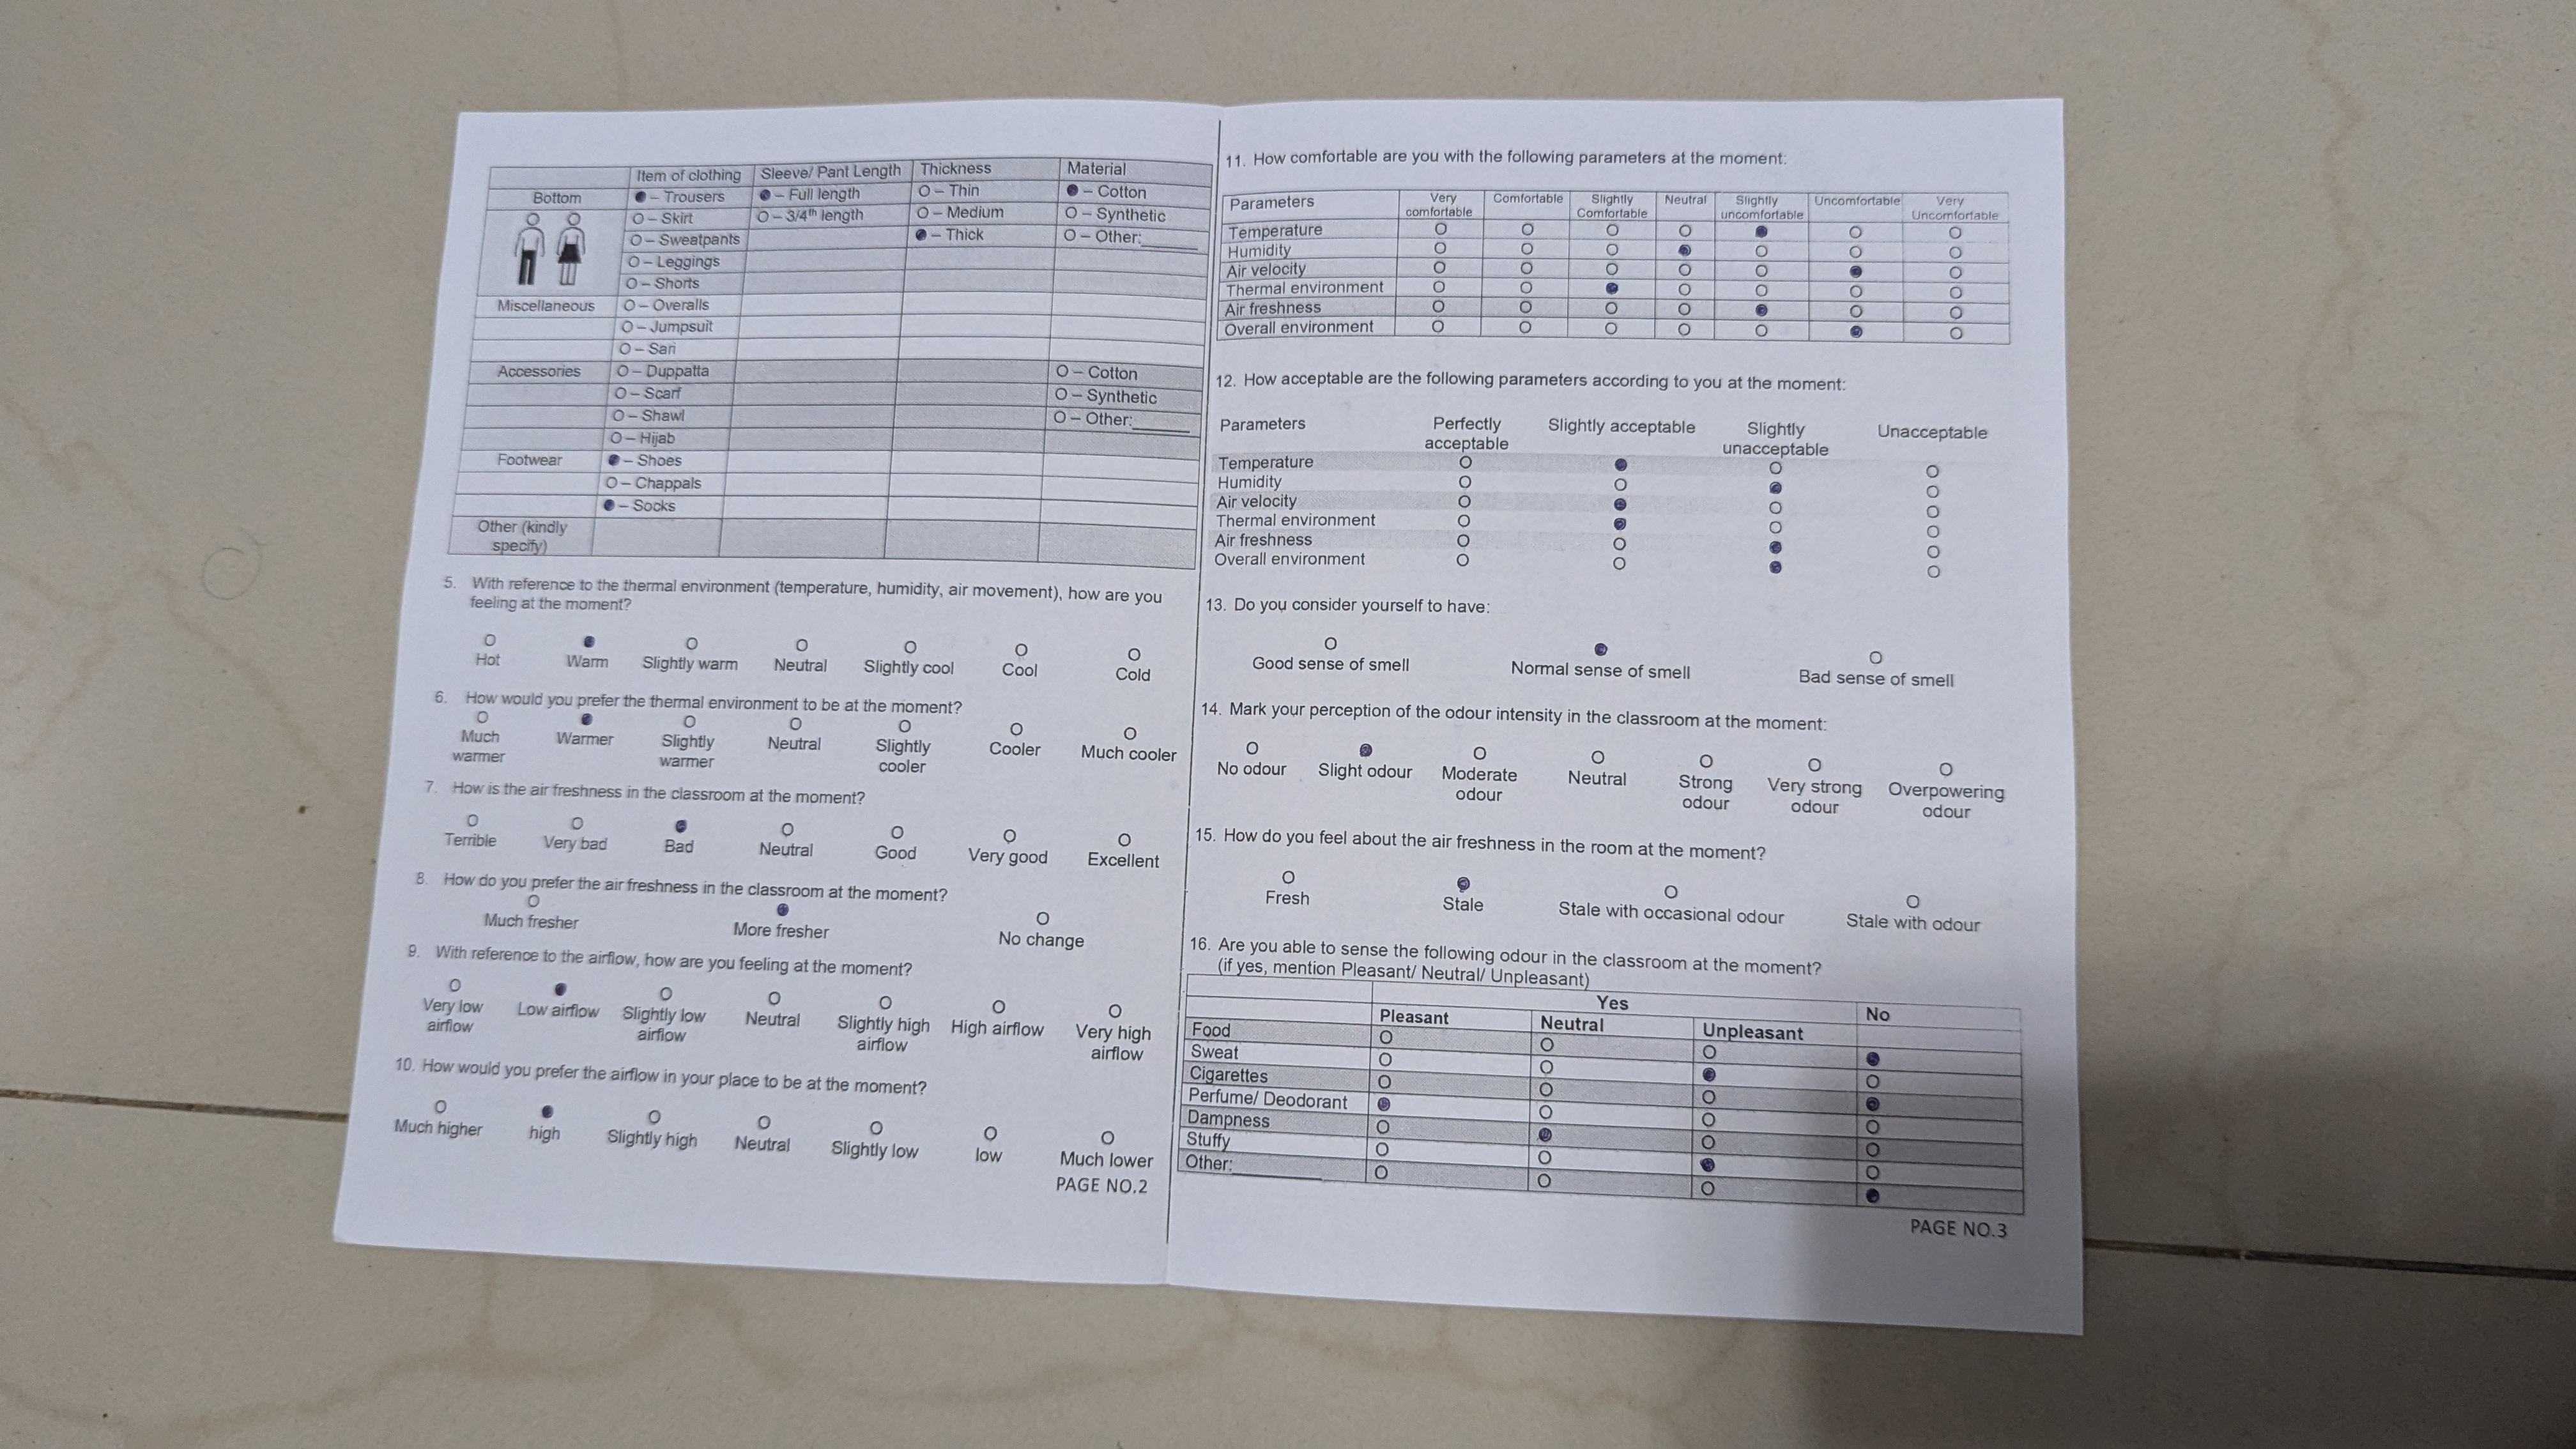 Item of clothing Sleeve/ Pant Length Thickness Material
Bottom ● – Trousers ● – Full length O – Thin ● – Cotton
O – Skirt O – 3/4th length O – Medium O – Synthetic
O – Sweatpants ● – Thick O – Other:______
O – Leggings
O – Shorts
Miscellaneous O – Overalls
O – Jumpsuit
O – Sari
Accessories O – Duppatta O – Cotton
O – Scarf O – Synthetic
O – Shawl O – Other:______
O – Hijab
Footwear ● – Shoes
O – Chappals
● – Socks
Other (kindly
specify)
5. With reference to the thermal environment (temperature, humidity, air movement), how are you
feeling at the moment?
O ● O O O O O
Hot Warm Slightly warm Neutral Slightly cool Cool Cold
6. How would you prefer the thermal environment to be at the moment?
O ● O O O O O
Much Warmer Slightly Neutral Slightly Cooler Much cooler
warmer warmer cooler
7. How is the air freshness in the classroom at the moment?
O O ● O O O O
Terrible Very bad Bad Neutral Good Very good Excellent
8. How do you prefer the air freshness in the classroom at the moment?
O ● O
Much fresher More fresher No change
9. With reference to the airflow, how are you feeling at the moment?
O ● O O O O O
Very low Low airflow Slightly low Neutral Slightly high High airflow Very high
airflow airflow airflow airflow
10. How would you prefer the airflow in your place to be at the moment?
O ● O O O O O
Much higher high Slightly high Neutral Slightly low low Much lower
PAGE NO.2
11. How comfortable are you with the following parameters at the moment:
Parameters Very Comfortable Slightly Neutral Slightly Uncomfortable Very
comfortable Comfortable uncomfortable Uncomfortable
Temperature O O O O ● O O
Humidity O O O ● O O O
Air velocity O O O O O ● O
Thermal environment O O ● O O O O
Air freshness O O O O ● O O
Overall environment O O O O O ● O
12. How acceptable are the following parameters according to you at the moment:
Parameters Perfectly Slightly acceptable Slightly Unacceptable
acceptable unacceptable
Temperature O ● O O
Humidity O O ● O
Air velocity O ● O O
Thermal environment O ● O O
Air freshness O O ● O
Overall environment O O ● O
13. Do you consider yourself to have:
O ● O
Good sense of smell Normal sense of smell Bad sense of smell
14. Mark your perception of the odour intensity in the classroom at the moment:
O ● O O O O O
No odour Slight odour Moderate Neutral Strong Very strong Overpowering
odour odour odour odour
15. How do you feel about the air freshness in the room at the moment?
O ● O O
Fresh Stale Stale with occasional odour Stale with odour
16. Are you able to sense the following odour in the classroom at the moment?
(if yes, mention Pleasant/ Neutral/ Unpleasant)
Yes No
Pleasant Neutral Unpleasant
Food O O O ●
Sweat O O ● O
Cigarettes O O O ●
Perfume/ Deodorant ● O O O
Dampness O ● O O
Stuffy O O ● O
Other:________ O O O ●
PAGE NO.3